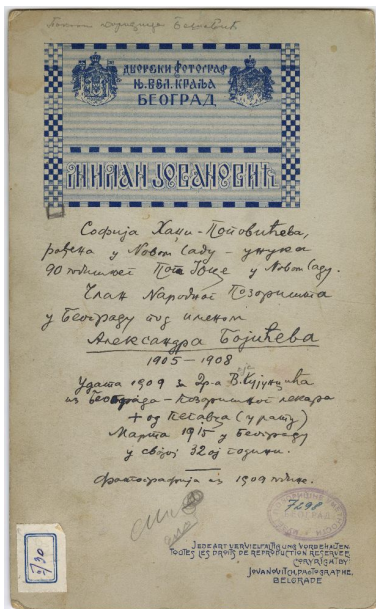 Поклон породице Бешевић
ДВОРСКИ ФОТОГРАФ
Њ. ВЕЛ. КРАЉА
БЕОГРАД
МИЛАН ЈОВАНОВИЋ
Софија Хаџи-Поповићева,
рођена у Новом Саду - унука
90 годишњег Попа Јоце у Новом Саду.
Члан Народног Позоришта
у Београду под именом
Александра Бојићева
1905-1908
Удата 1909 за др-а В.
из Београда - Позоришног лекара
+ од Пегавца (у рату)
Марта 1915 у Београду
у својој 32ој години.
Фотографија из 1909 године.
7298
5730
JEDE ART VERVIELFÄLTIGUNG VORBEHALTEN
TOUTES LES DROITS DE REPRODUCTION RESERVEE
COPYRIGHT BY
JOVANOVITCH, PHOTOGRAPHE,
BELGRADE